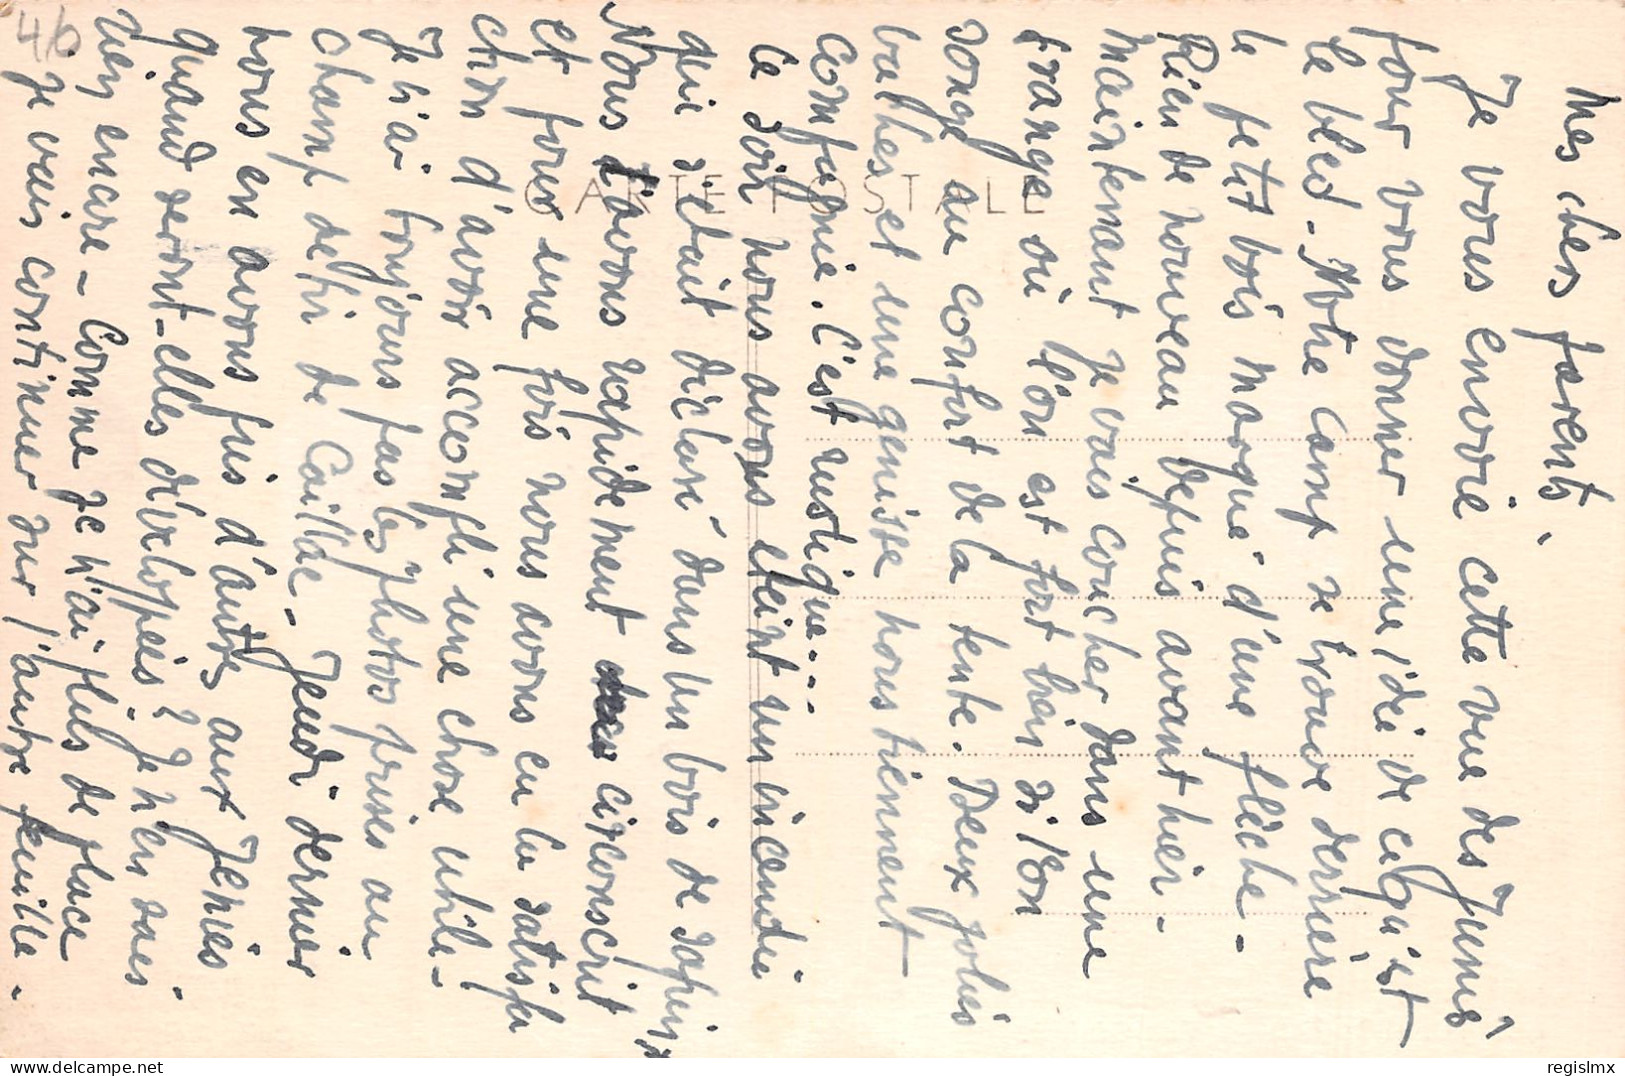 Mes chers parents,
Je vous envoie cette vue des Junies
pour vous donner une idée de ce qu'est
le bled - Notre camp se trouve derrière
le petit bois marqué d'une flèche -
Rien de nouveau depuis avant hier -
Maintenant je vais coucher dans une
grange où l'on est fort bien si l'on
songe au confort de la tente. Deux jolies
vaches et une genisse nous tiennent
compagnie. C'est rustique....
Ce soir nous avons eteint un incendie
qui s'etait déclaré dans un bois de sapins
Nous l'avons rapidement circonscrit
et pour une fois nous avons eu la satisfa
ction d'avoir accompli une chose utile -
Je n'ai toujours pas les photos prises au
champ de tir de Caillac - Jeudi dernier
nous en avons pris d'autres aux Junies
quand seront-elles développées? Je n'en sais
rien encore - Comme je n'ai plus de place
je vais continuer sur l'autre feuille -
46
CARTE POSTALE
regislmx